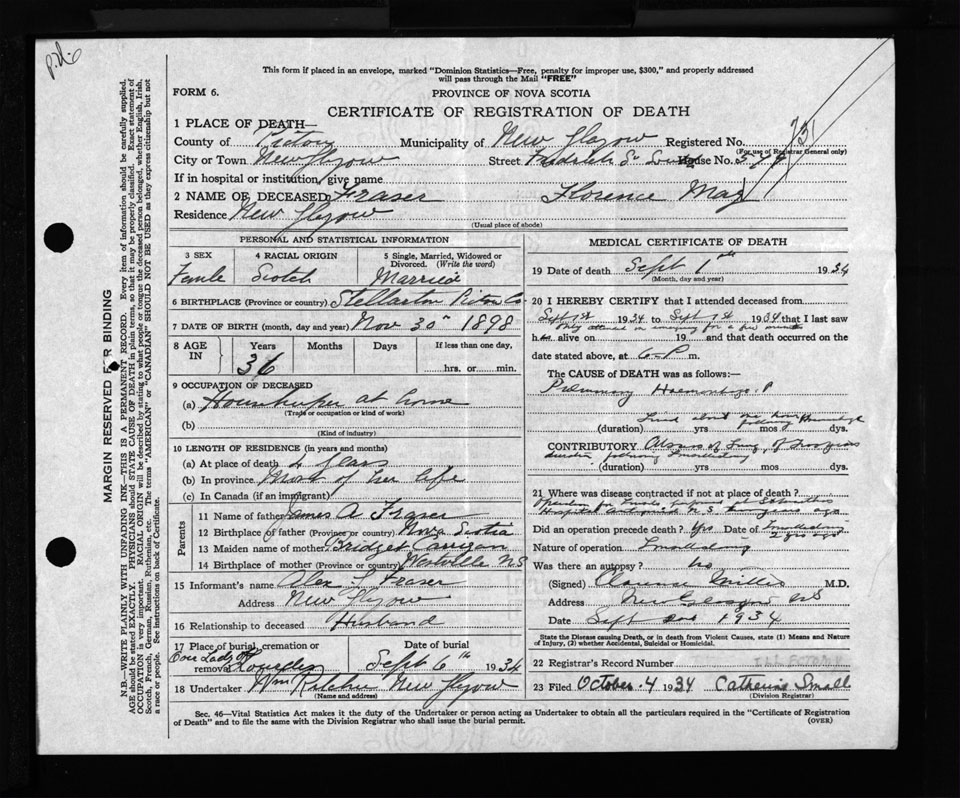 This form if placed in an envelope, marked "Dominion Statistics—Free, penalty for improper use, $300," and properly addressed
will pass through the Mail "FREE"
FORM 6.
PROVINCE OF NOVA SCOTIA
CERTIFICATE OF REGISTRATION OF DEATH
1 PLACE OF DEATH—
County of Pictou Municipality of New Glasgow Registered No.
(For use of Registrar General only)
City or Town New Glasgow Street House No.
If in hospital or institution, give name
2 NAME OF DECEASED Fraser Florence May
Residence New Glasgow
(Usual place of abode)
PERSONAL AND STATISTICAL INFORMATION
3 SEX 4 RACIAL ORIGIN 5 Single, Married, Widowed or
Divorced. (Write the word)
Female Scotch Married
6 BIRTHPLACE (Province or country) Stellarton Pictou Co
7 DATE OF BIRTH (month, day and year) Nov 30th 1898
8 AGE IN Years Months Days If less than one day,
36 hrs. or min.
9 OCCUPATION OF DECEASED
(a) Housekeeper at home
(Trade or occupation or kind of work)
(b)
(Kind of industry)
10 LENGTH OF RESIDENCE (in years and months)
(a) At place of death 4 years
(b) In province Most of her life
(c) In Canada (if an immigrant)
Parents
11 Name of father James A Fraser
12 Birthplace of father (Province or country) Nova Scotia
13 Maiden name of mother Bridget Corrigan
14 Birthplace of mother (Province or country) Westville NS
15 Informant's name Alex Fraser
Address New Glasgow
16 Relationship to deceased Husband
17 Place of burial, cremation or removal Date of burial
Our Lady of Lourdes Sept 6th 1934
18 Undertaker Wm New Glasgow
MEDICAL CERTIFICATE OF DEATH
19 Date of death Sept 1st 1934
(Month, day and year)
20 I HEREBY CERTIFY that I attended deceased from
Sept 1st 1934 to Sept 1st 1934 that I last saw
Only attended on emergency for a few minutes
h alive on 19 , and that death occurred on the
date stated above, at 6 P m.
The CAUSE of DEATH was as follows:—
Pulmonary Haemorrhage
Lived about one hour following Haemorrhage
(duration) yrs mos dys.
CONTRIBUTORY Abscess of Lung, of two years
duration following
(duration) yrs. mos. dys.
21 Where was disease contracted if not at place of death?
Hospital Antigonish N.S. two years ago
Did an operation precede death? Yes Date of 2 yrs ago
Nature of operation
Was there an autopsy? No
(Signed) Clarence Miller M.D.
Address New Glasgow NS
Date Sept 2nd 1934
State the Disease causing Death, or in death from Violent Causes, state (1) Means and Nature
of Injury, (2) whether Accidental, Suicidal or Homicidal.
22 Registrar's Record Number
23 Filed October 4 1934 Catherine Small
(Division Registrar)
Sec. 46—Vital Statistics Act makes it the duty of the Undertaker or person acting as Undertaker to obtain all the particulars required in the "Certificate of Registration
of Death" and to file the same with the Division Registrar who shall issue the burial permit.
(OVER)
MARGIN RESERVED FOR BINDING
N.B.—WRITE PLAINLY WITH UNFADING INK—THIS IS A PERMANENT RECORD. Every item of information should be carefully supplied.
AGE should be stated EXACTLY. PHYSICIANS should STATE CAUSE OF DEATH in plain terms, so that it may be properly classified. Exact statement of
OCCUPATION is very important. RACIAL ORIGIN will be described by stating to what people or tongue the deceased person belonged, whether English, Irish,
Scotch, French, German, Russian, Ruthenian, etc. The terms "AMERICAN" or "CANADIAN" SHOULD NOT BE USED as they express citizenship but not
a race or people. See instructions on back of Certificate.